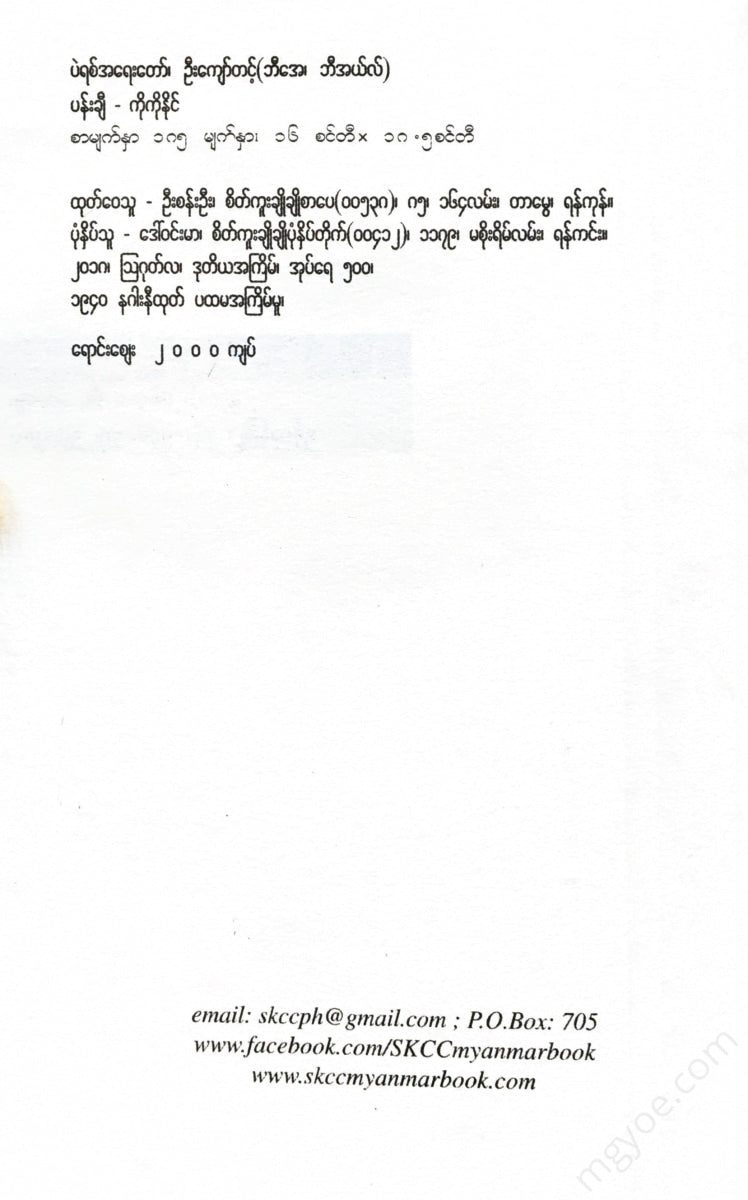 ပဲရစ်အရေးတော်၊ ဦးကျော်တင့်(ဘီအေ၊ ဘီအယ်လ်)
ပန်းချီ - ကိုကိုနိုင်
စာမျက်နှာ ၁၈၅ မျက်နှာ၊ ၁၆ စင်တီ× ၁၈.၅စင်တီ
ထုတ်ဝေသူ - ဦးစန်းဦး၊ စိတ်ကူးချိုချိုစာပေ(၀၀၅၃၈)၊ ၈၅၊ ၁၆၄လမ်း၊ တာမွေ၊ ရန်ကုန်။
ပုံနှိပ်သူ - ဒေါ်ဝင်းမာ၊ စိတ်ကူးချိုချိုပုံနှိပ်တိုက်(၀၀၄၁၂)၊ ၁၁၇၉၊ မစိုးရိမ်လမ်း၊ ရန်ကင်း။
၂၀၁၈၊ ဩဂုတ်လ၊ ဒုတိယအကြိမ်၊ အုပ်ရေ ၅၀၀၊
၁၉၄၀ နဂါးနီထုတ် ပထမအကြိမ်မူ၊
ရောင်းဈေး ၂ ၀ ၀ ၀ ကျပ်
email: skccph@gmail.com ; P.O.Box: 705
www.facebook.com/SKCCmyanmarbook
www.skccmyanmarbook.com
mgyoe.com